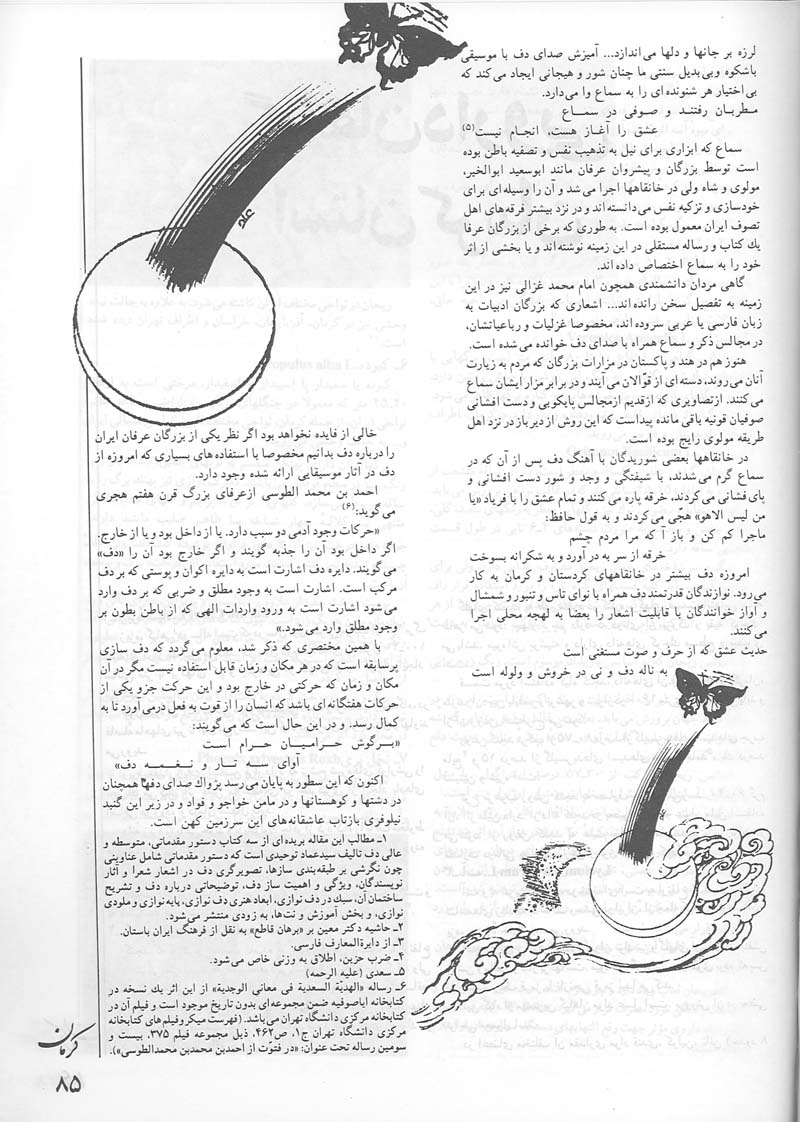 لرزه بر جانها و دلها می‌اندازد... آمیزش صدای دف با موسیقی
باشکوه و بی‌بدیل سنتی ما چنان شور و هیجانی ایجاد می‌کند که
بی‌اختیار هر شنونده‌ای را به سماع وا می‌دارد.
مطربان رفتند و صوفی در سماع
عشق را آغاز هست، انجام نیست(۵)
سماع که ابزاری برای نیل به تذهیب نفس و تصفیه باطن بوده
است توسط بزرگان و پیشروان عرفان مانند ابوسعید ابوالخیر،
مولوی و شاه ولی در خانقاهها اجرا می‌شد و آن را وسیله‌ای برای
خودسازی و تزکیه نفس می‌دانسته‌اند و در نزد بیشتر فرقه‌های اهل
تصوف ایران معمول بوده است. به طوری که برخی از بزرگان عرفا
یك کتاب و رساله مستقلی در این زمینه نوشته‌اند و یا بخشی از اثر
خود را به سماع اختصاص داده‌اند.
گاهی مردان دانشمندی همچون امام محمد غزالی نیز در این
زمینه به تفصیل سخن رانده‌اند... اشعاری که بزرگان ادبیات به
زبان فارسی یا عربی سروده‌اند، مخصوصا غزلیات و رباعیاتشان،
در مجالس ذکر و سماع همراه با صدای دف خوانده می‌شده است.
هنوز هم در هند و پاکستان در مزارات بزرگان که مردم به زیارت
آنان می‌روند، دسته‌ای از قوّالان می‌آیند و در برابر مزار ایشان سماع
می‌کنند. ازتصاویری که ازقدیم ازمجالس پایکوبی و دست افشانی
صوفیان قونیه باقی مانده پیداست که این روش از دیر باز در نزد اهل
طریقه مولوی رایج بوده است.
در خانقاهها بعضی شوریدگان با آهنگ دف پس از آن که در
سماع گرم می‌شدند، با شیفتگی و وجد و شور دست افشانی و
پای فشانی می‌کردند، خرقه پاره می‌کنند و تمام عشق را با فریاد «یا
من لیس الاهو» هجّی می‌کردند و به قول حافظ:
ماجرا کم کن و باز آ که مرا مردم چشم
خرقه از سر به در آورد و به شکرانه بسوخت
امروزه دف بیشتر در خانقاههای کردستان و کرمان به کار
می‌رود. نوازندگان قدرتمند دف همراه با نوای تاس و تنبور و شمشال
و آواز خوانندگان با قابلیت اشعار را بعضا به لهجه محلی اجرا
می‌کنند.
حدیث عشق که از حرف و صوت مستغنی است
به ناله دف و نی در خروش و ولوله است
خالی از فایده نخواهد بود اگر نظر یکی از بزرگان عرفان ایران
را درباره دف بدانیم مخصوصا با استفاده های بسیاری که امروزه از
دف در آثار موسیقایی ارائه شده وجود دارد.
احمد بن محمد الطوسی ازعرفای بزرگ قرن هفتم هجری
می‌گوید:(۶)
«حرکات وجود آدمی دو سبب دارد. یا از داخل بود و یا از خارج.
اگر داخل بود آن را جذبه گویند و اگر خارج بود آن را «دف»
می‌گویند. دایره دف اشارت است به دایره اکوان و پوستی که بر دف
مرکب است. اشارت است به وجود مطلق و ضربی که بر دف وارد
می‌شود اشارت است به ورود واردات الهی که از باطن بطون بر
وجود مطلق وارد می‌شود.»
با همین مختصری که ذکر شد، معلوم می‌گردد که دف سازی
پرسابقه است که در هر مکان و زمان قابل استفاده نیست مگر در آن
مکان و زمان که حرکتی در خارج بود و این حرکت جزو یکی از
حرکات هفتگانه ای باشد که انسان را از قوت به فعل درمی‌آورد تا به
کمال رسد. و در این حال است که می‌گویند:
«برگوش حرامیان حرام است
آوای سه تار و نغمه دف»
اکنون که این سطور به پایان می‌رسد پژواك صدای دفها همچنان
در دشتها و کوهستانها و در مامن خواجو و فواد و در زیر این گنبد
نیلوفری بازتاب عاشقانه‌های این سرزمین کهن است.
۱ـ مطالب این مقاله بریده‌ای از سه کتاب دستور مقدماتی، متوسطه و
عالی دف تالیف سیدعماد توحیدی است که دستور مقدماتی شامل عناوینی
چون نگرشی بر طبقه‌بندی سازها، تصویرگری دف در اشعار شعرا و آثار
نویسندگان، ویژگی و اهمیت ساز دف، توضیحاتی درباره دف و تشریح
ساختمان آن، سبك در دف نوازی، ابعاد هنری دف نوازی، پایه نوازی و ملودی
نوازی، و بخش آموزش و نت‌ها، به زودی منتشر می‌شود.
۲ـ حاشیه دکتر معین بر «برهان قاطع» به نقل از فرهنگ ایران باستان.
۳ـ از دایرةالمعارف فارسی.
۴ـ ضرب حزین، اطلاق به وزنی خاص می‌شود.
۵ـ سعدی (علیه الرحمه)
۶ـ رساله «الهدیّة السعدیة فی معانی الوجدیة» از این اثر یك نسخه در
کتابخانه ایاصوفیه ضمن مجموعه‌ای بدون تاریخ موجود است و فیلم آن در
کتابخانه مرکزی دانشگاه تهران می‌باشد. (فهرست میکروفیلم‌های کتابخانه
مرکزی دانشگاه تهران ج۱، ص۴۶۲، ذیل مجموعه فیلم ۳۷۵، بیست و
سومین رساله تحت عنوان: «در فتوّت از احمدبن محمدبن محمدالطوسی»).
کرمان
۸۵